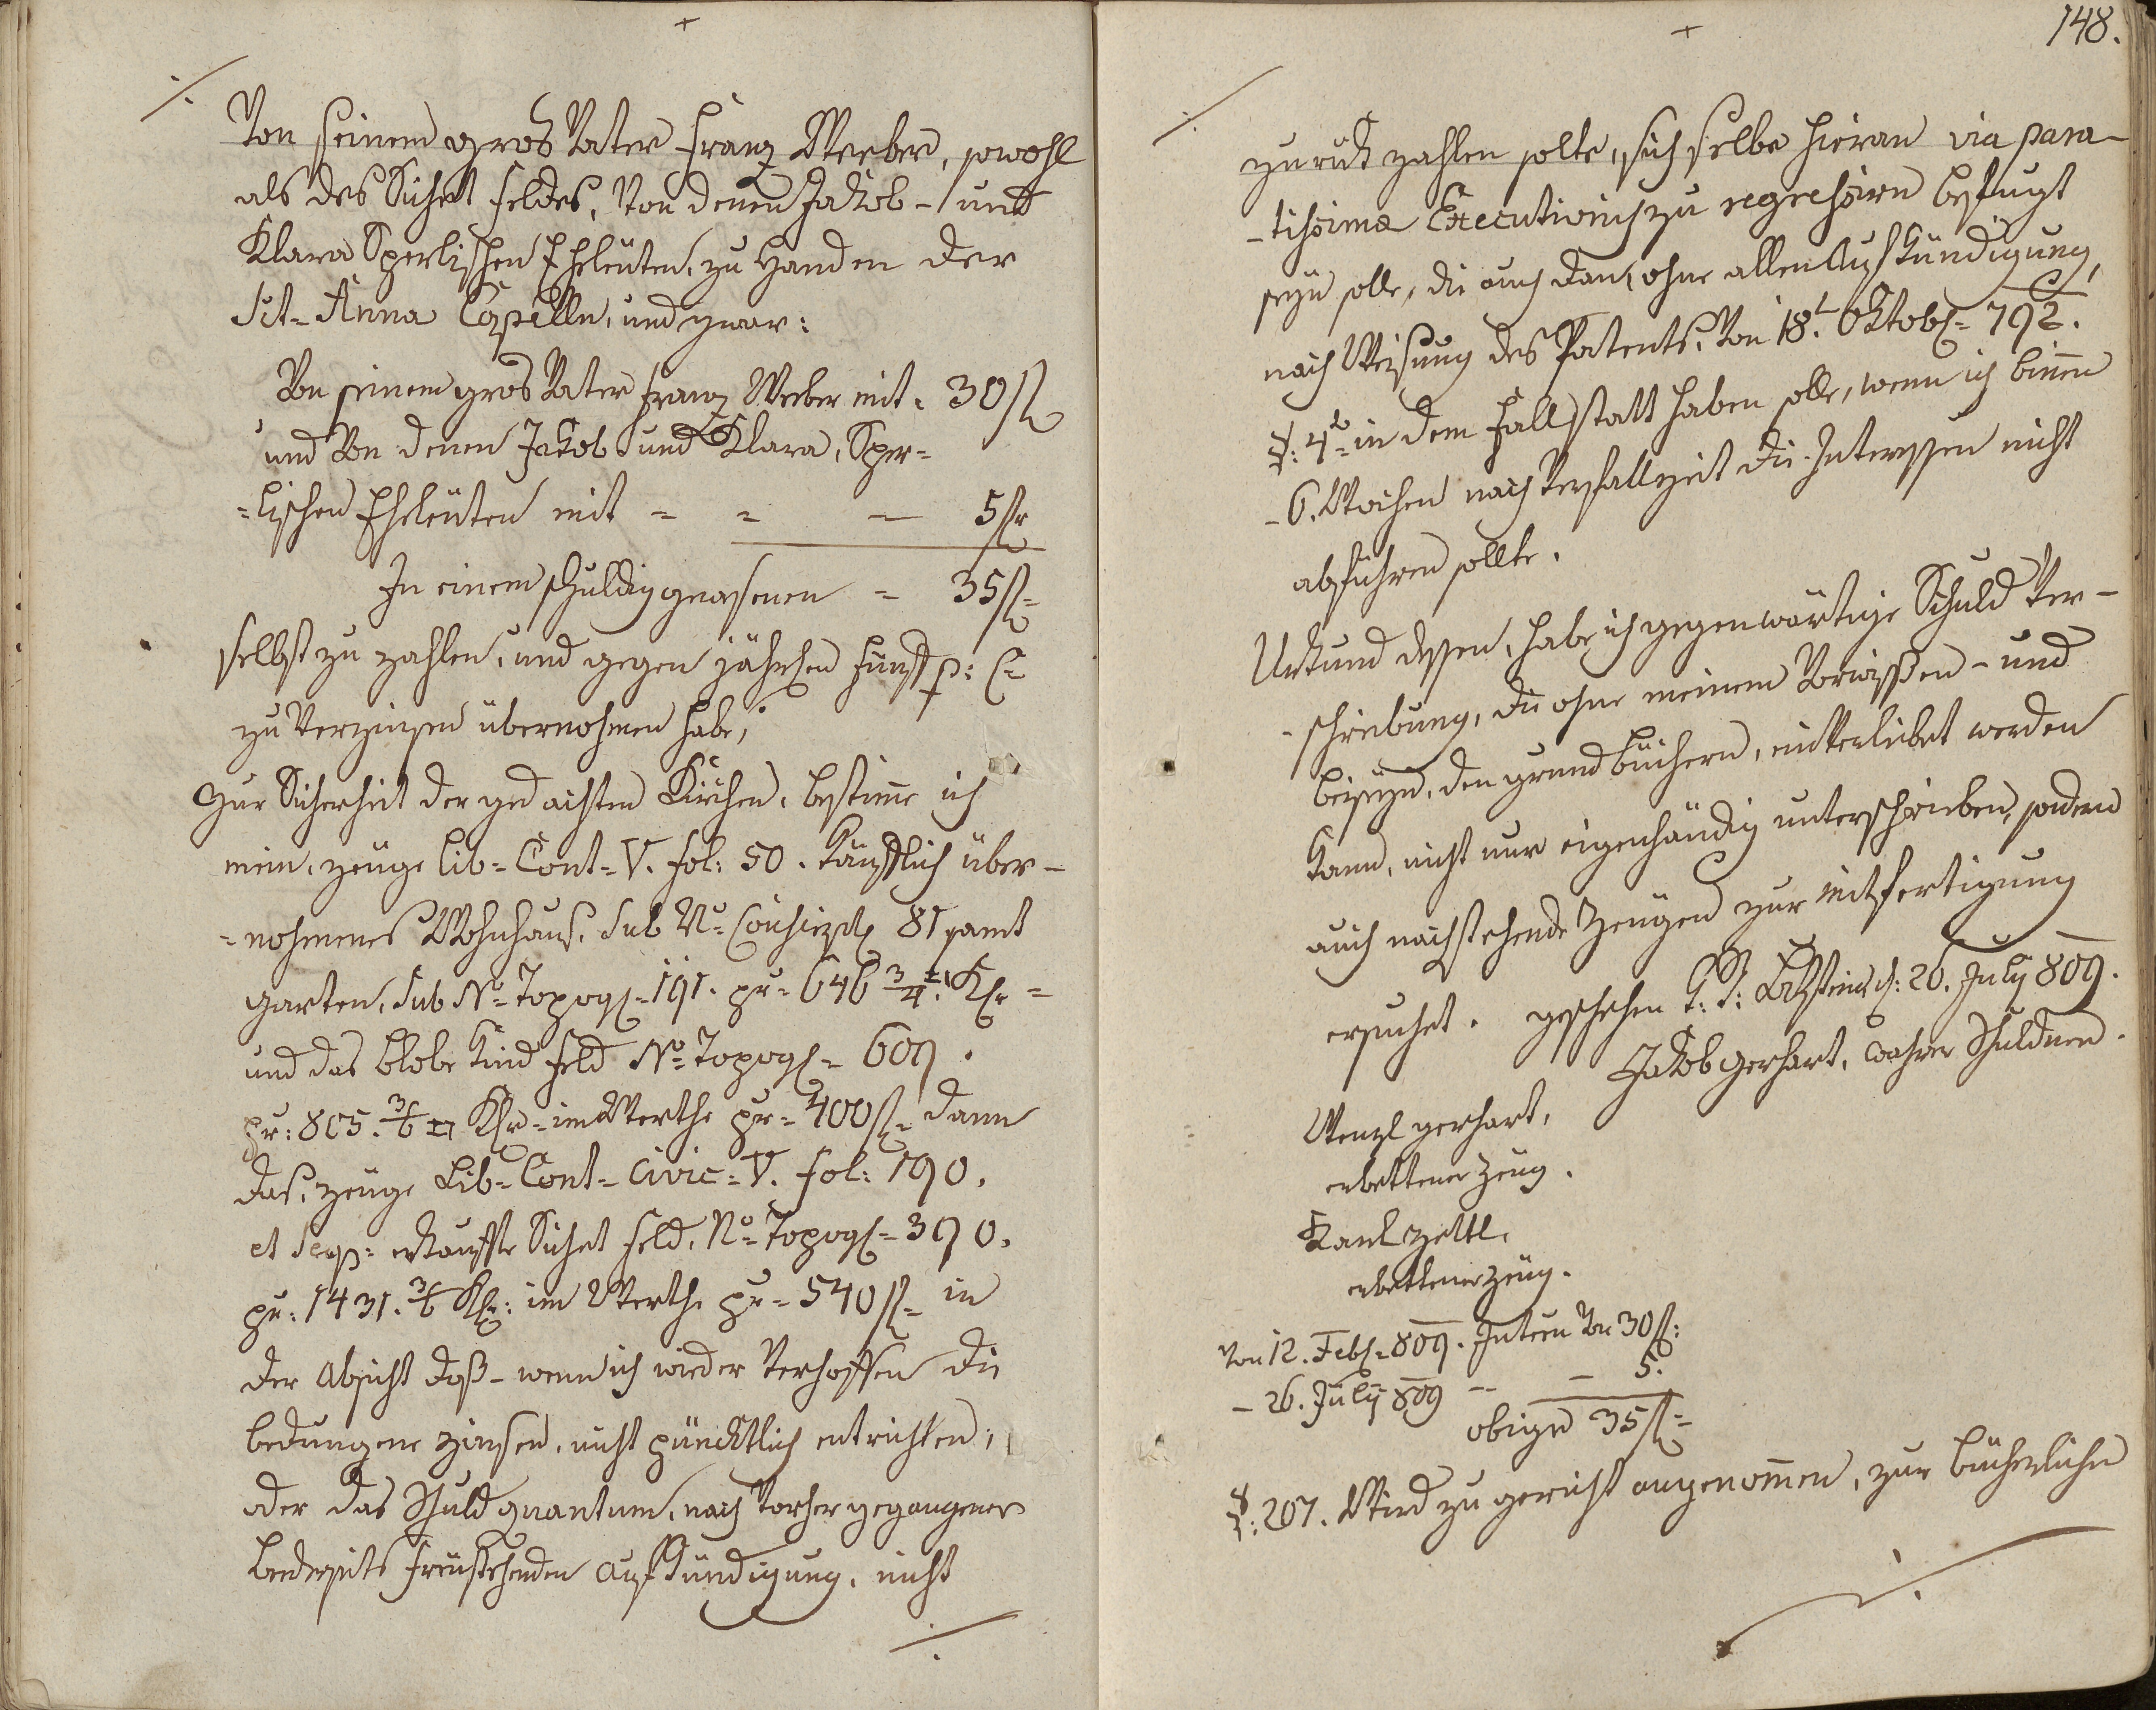 Von seinem gros Vater Franz Weeber, sowohl
als des Sichet feldes, Von denen Jakob- und
Klara Sperlischen Eheleüten, zu Handen der
Sct= Anna Capelln, und zwar:
Von seinem gros Vater Franz Weeber mit = 30 fl
und Von denen Jakob und Klara, Sper=
=lischen Eheleüten mit = = — 5 fl
In einem schuldig gewesenen = 35 fl=
selbst zu zahlen, und gegen jährlichen fünf p: C=
zu Verzinsen übernohmen habe,
Zur Sicherheit der gedachten Kirchen, bestime ich
mein, zeüge Lib= Cont= V. fol: 50. käuflich über-
=nohmenes Wohnhaus, Sub No= 81 samt
garten, Sub No= Topogr= 191. pr= 646 3/4 Klr=
und das Feld No= Topogr= 609.
pr: 805. 3/6 Klr= im Werthe pr= 400 fl= dann
das, zeüge Lib= Cont= Civic= V. fol: 190.
et Seq= erkaufte Sichet feld, No= Topogr= 390.
pr: 1431. 3/6 Klr: im Werthe pr= 540 fl= in
der absicht daß- wenn ich wieder Verhoffen die
bedungene zinsen, nicht pünktlich entrichten,
oder das Schuldquantum, nach Vorhergegangener
beederseits freüstehenden aufkündigung, nicht
148.
zuruk zahlen solte, sich selbe hieran via para-
-tissima Executivisch zu regressiren befugt
seyn solle, die auch dann, ohne allen Aufkündigung,
nach Weisung des Patents, Von 18t. Oktobr= 792.
§: 4to= in dem Fall statt haben solle, wenn ich binen
-6. Wochen nach Verfallzeit die Interessen nicht
abführen sollte.
Urkund dessen, habe ich gegenwärtige Schuld Ver-
-schreibung, die ohne meinem Vorwissen- und
beiseyn, den grundbüchern, einverleibet werden
kann, nicht nur eigenhändig unterschrieben, sondern
auch nachstehende Zeügen zur mitfertigung
ersuchet. geschehen 26. July 809.
Jakob gerhart, wahrer Schuldner.
Wenzl gerhart,
erbettener Zeüg.
Karl Zettl,
erbettener Zeüg.
Von 12. Febr= 809. Interen Von 30 fl:
- 26. July 809 -- - 5.
obige 35 fl=
§: 207. Wird zu gericht angenomen, zur bücherlichen